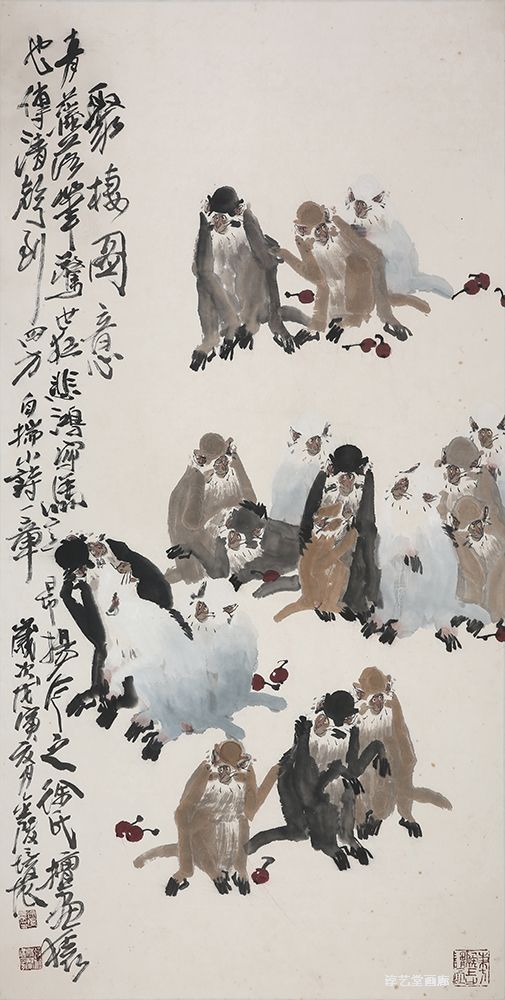 聚棲圖意
青藤落筆驚世狂悲鴻寫馬志昂揚今之徐氏擅畫猿
也傳清韻到四方 自揣小詩一章 歲次戊寅夏月
淳艺堂画廊